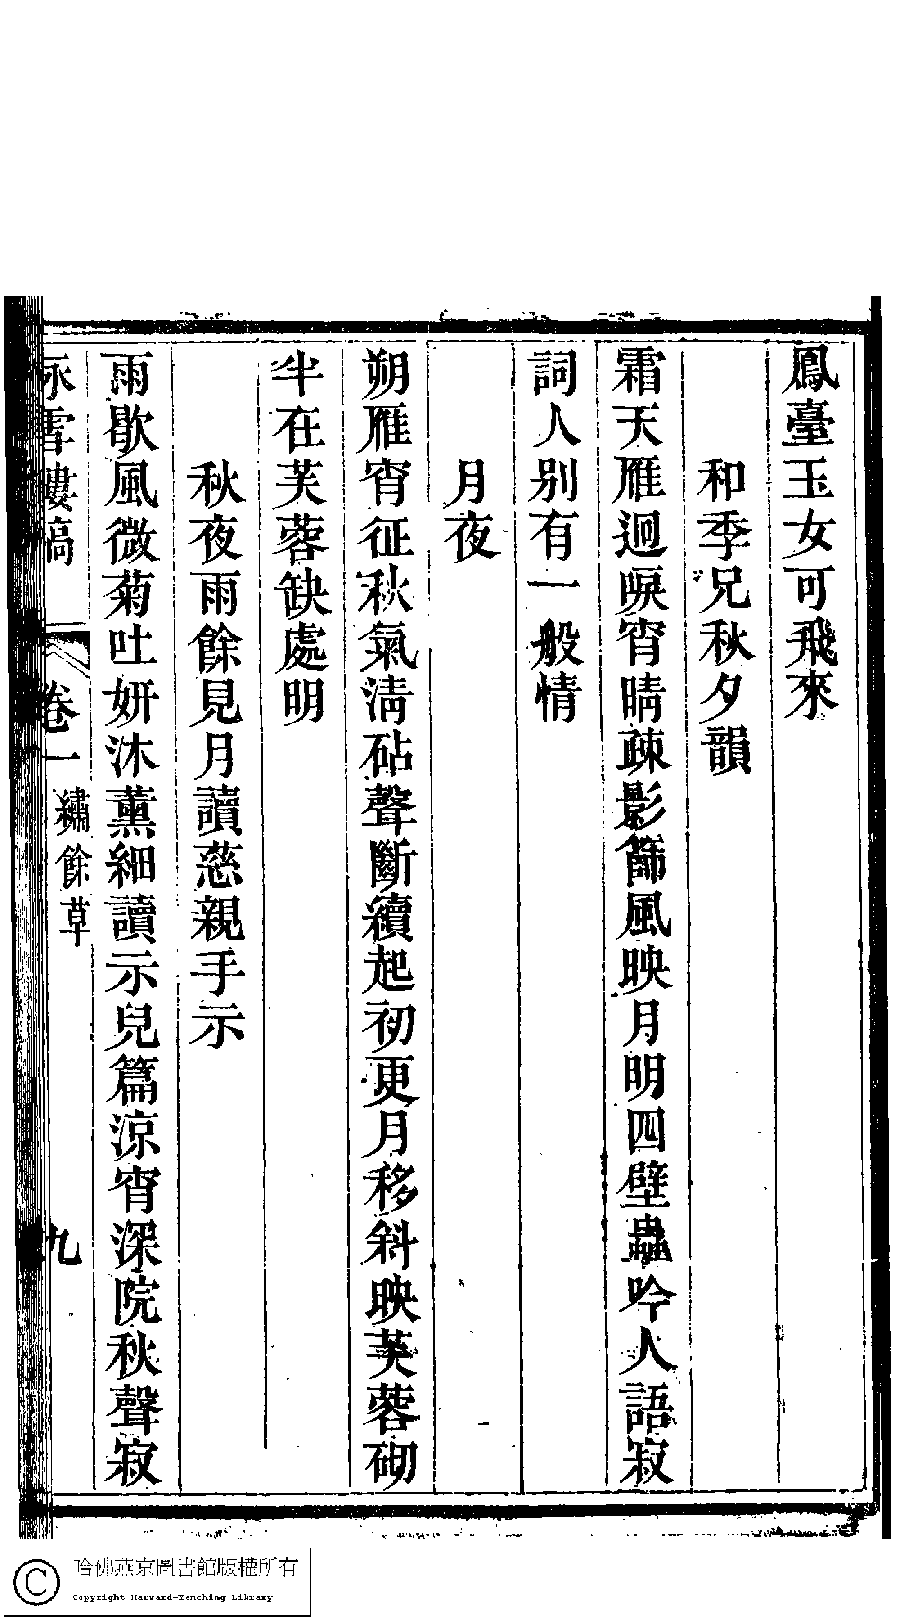 鳳臺玉女可飛來
和季兄秋夕韻
霜天雁迴唳宵晴疎影篩風映月明四壁蟲吟人語寂
詞人別有一般情
月夜
朔雁宵征秋氣淸砧聲斷續起初更月移斜映芙蓉砌
半在芙蓉缺處明
秋夜雨餘見月讀慈親手示
雨歇風微菊吐妍沐薰細讀示兒篇涼宵深院秋聲寂
詠雪樓稿 卷一 繡餘草 九
哈佛燕京圖書館版權所有
Copyright Harvard-Yenching Library